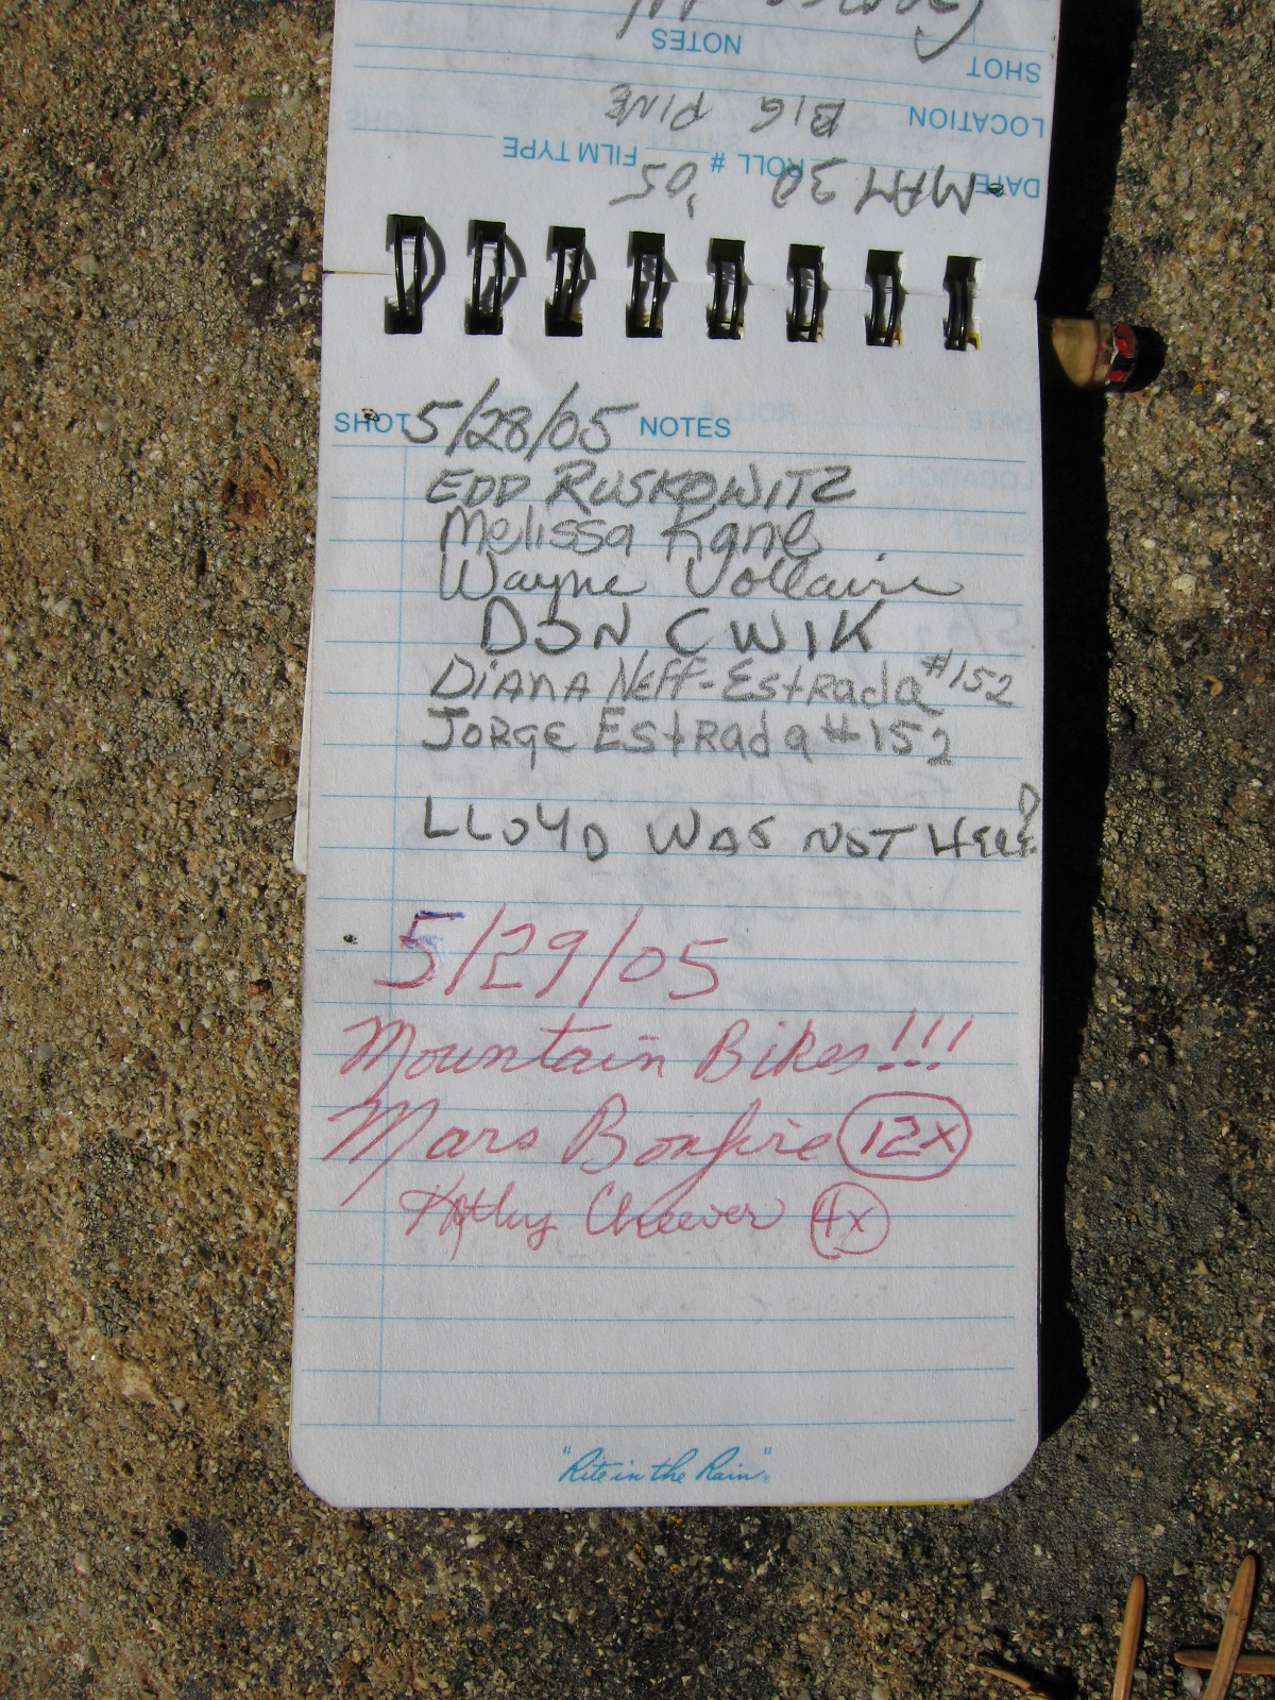 NOTES
SHOT
LOCATION BIG PINE
DATE MAY 30 ROLL # '05 FILM TYPE
SHOT 5/28/05 NOTES
EDD RUSKOWITZ
Melissa Kane
Wayne Vollaire
DON CWIK
DiANA NEFF-EstRada #152
JORGE EstRada #152
LLOYD WAS NOT HERE!
5/29/05
Mountain Bikes!!!
Mars Bonfire 12x
Kathy Cheever 4x
"Rite in the Rain"